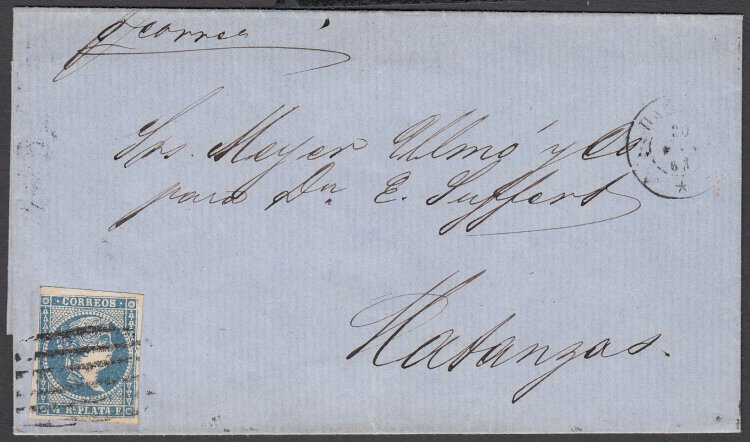 p correo
Srs. Meyer Ulmo y Co
para Dn E. Suffert
Matanzas.
CORREOS
½ Rl. PLATA F.